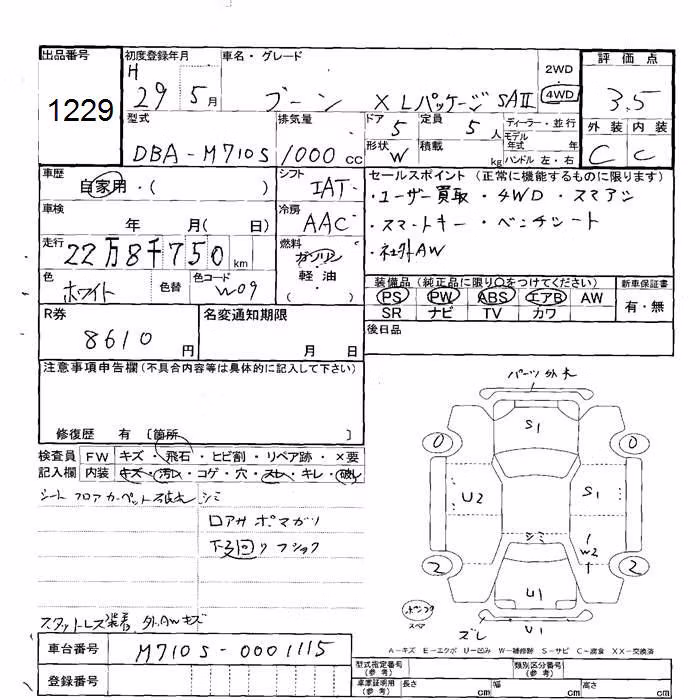 出品番号
1229
初度登録年月
H
29 5月
車名・グレード
ブーン X Lパッケージ SAⅡ
2WD
4WD
評価点
3.5
外装 内装
C C
型式
DBA-M710S
排気量
1000 cc
ドア 5
定員 5 人
ディーラー・並行
モデル
年式 年
形状 W
積載 kg
ハンドル 左・右
車歴
自家用・( )
シフト
IAT
車検
年 月( 日)
冷房
AAC
走行
22万8千750 km
燃料
ガソリン
軽・油
( )
色
ホワイト
色替
色コード
W09
セールスポイント (正常に機能するものに限ります)
・ユーザー買取 ・4WD ・スマアシ
・スマートキー ・ベンチシート
・社外AW
装備品 (純正品に限り○をつけてください)
PS PW ABS エアB AW
SR ナビ TV カワ
新車保証書
有・無
後日品
R券
8610 円
名変通知期限
月 日
注意事項申告欄 (不具合内容等は具体的に記入して下さい)
修復歴 有 〔箇所 〕
検査員 FW キズ・飛石・ヒビ割・リペア跡・×要
記入欄 内装 キズ・汚レ・コゲ・穴・スレ・キレ・破レ
シート フロアカーペット シミ
ロアサポマガリ
下回リフショク
スタットレス装着 外AWキズ
車台番号
M710S-0001115
登録番号
パーツ外れ
S1
0 0
U2
S1
シミ
W2
2 2
U1
スペア
ズレ
U1
A-キズ E-エクボ U-凹み W-補修跡 S-サビ C-腐食 XX-交換済
型式指定番号
(参考)
類別区分番号
(参考)
車庫証明用
(参考)
長さ cm
幅 cm
高さ cm